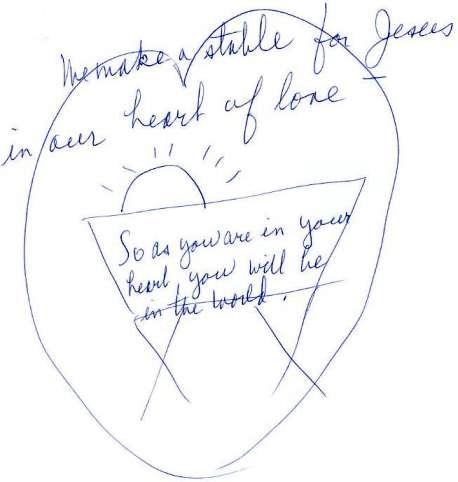 We make a stable for Jesus
in our heart of love
So as you are in your
heart, you will be
in the world.